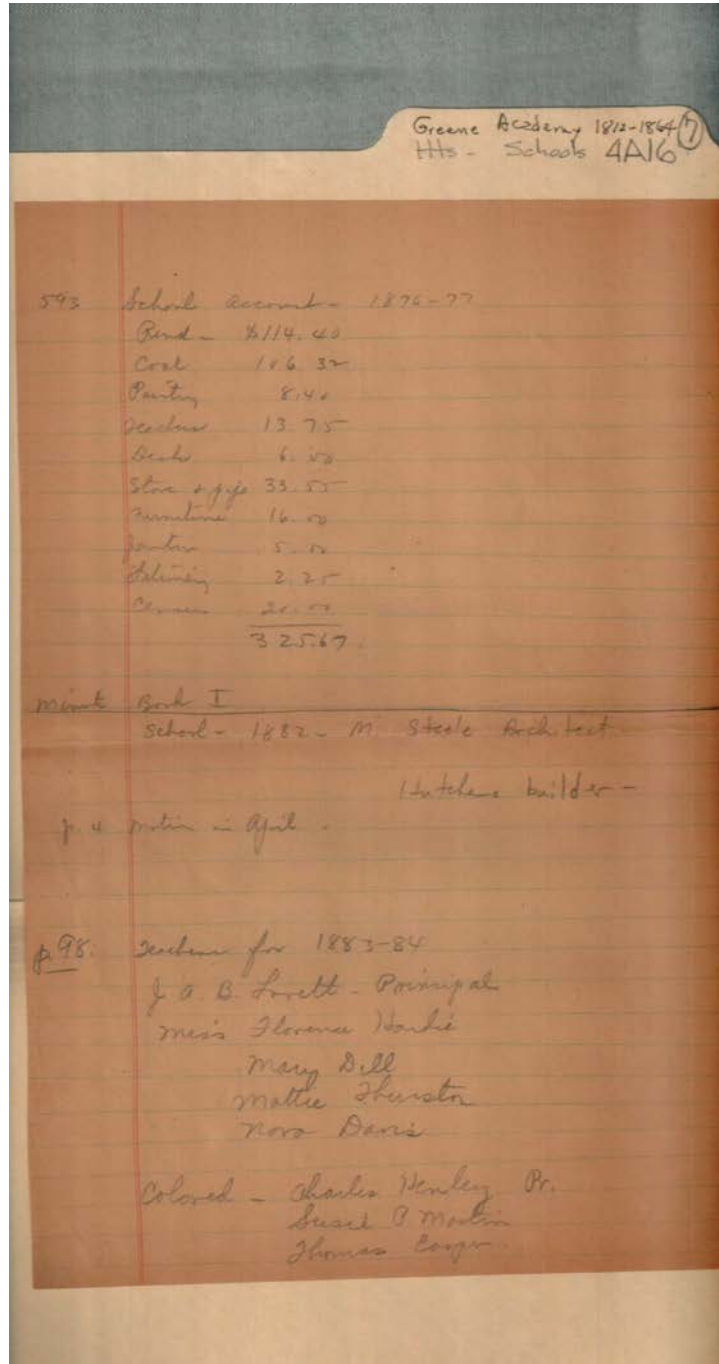 Greene Academy 1812-1864 (7)
HHs - Schools 4A16
593 School account - 1876-77
Rend - $114.40
Coal 106.32
8.40
Teachers 13.75
Desks 6.00
Stove & pipe 33.55
Furniture 16.00
Janitor 5.00
2.25
Census 20.00
325.67
Minute Book I
School - 1882 - M. Steele Architect
Hutchens builder -
p. 4 Motion in April.
p. 98. Teachers for 1883-84
J. A. B. Lovett - Principal
Miss Florence Hardie
Mary Dill
Mattie Thurston
Nora Davis
Colored - Charles Hendley Pr.
Susie P Martin
Thomas Cooper